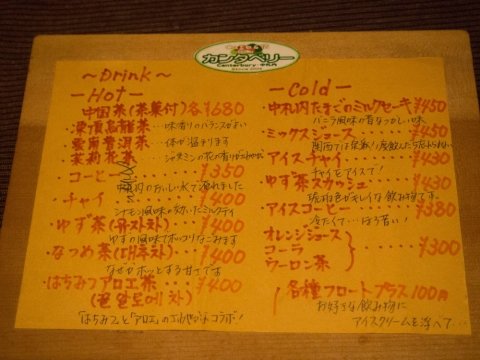 カンタベリー
Canterbury
〜Drink〜
ーHotー
中国茶(茶菓付)各¥680
・凍頂烏龍茶ー 味香りのバランスがよい
・雲南普洱茶ー 体が温まります
・茉莉花茶ー ジャスミンの花の香り
・コーヒー ¥350
札内のおいしい水で淹れました
・チャイ ¥400
シナモン風味の効いたミルクティ
・ゆず茶(유자차) ¥400
ゆずの風味でホッコリなごみます
・なつめ茶(대추차) ¥400
なぜかホッとする甘さです
・はちみつアロエ茶 ¥400
(꿀알로에차)
「はちみつ」と「アロエ」のコラボ!
ーColdー
・中札内たまごのミルクセーキ ¥450
バニラ風味の昔なつかしい味
・ミックスジュース ¥450
関西では定番!
・アイスチャイ ¥430
チャイをアイスで!
・ゆず茶スカッシュ ¥430
琥珀色がキレイな飲み物です。
・アイスコーヒー ¥380
冷たくて…ほろ苦い!
・オレンジジュース
・コーラ ¥300
・ウーロン茶
・各種フロートプラス100円
お好きな飲み物に
アイスクリームを浮べて…